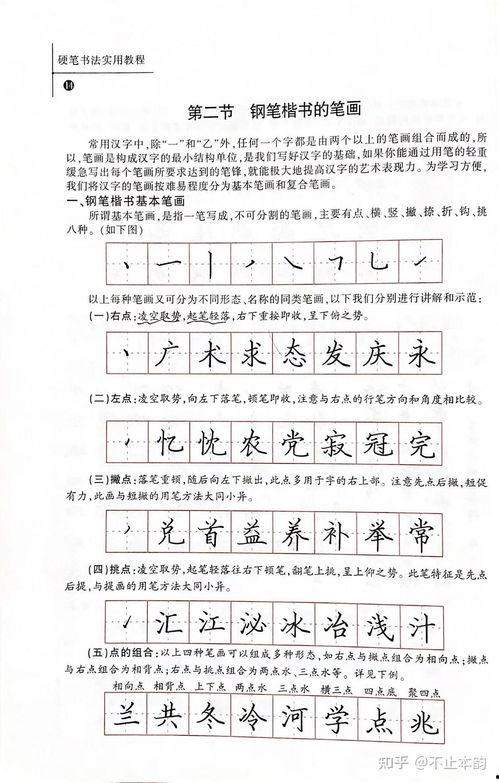 硬笔书法实用教程
14
第二节 钢笔楷书的笔画
常用汉字中,除“一”和“乙”外,任何一个字都是由两个以上的笔画组合而成的,所
以,笔画是构成汉字的最小结构单位,是我们写好汉字的基础,如果你能通过用笔的轻重
缓急写出每个笔画所要求达到的笔锋,就能极大地提高汉字的艺术表现力。为学习方便,
我们将汉字的笔画按难易程度分为基本笔画和复合笔画。
一、钢笔楷书基本笔画
所谓基本笔画,是指一笔写成,不可分割的笔画,主要有点、横、竖、撇、捺、折、钩、挑
八种。(如下图)
丶 一 丨 丿 ㇏ ㇕ 乚 ㇀
以上每种笔画又可分为不同形态、名称的同类笔画,以下我们分别进行讲解和示范:
(一)右点:凌空取势,起笔轻落,右下重按即收,呈下俯之势。
丶 广 术 求 态 发 庆 永
(二)左点:凌空取势,向左下落笔,顿笔即收,注意与右点的行笔方向和角度相比较。
忆 忱 农 党 寂 冠 完
(三)撇点:落笔重顿,随后向左下撇出,此点多用于字的右上部。注意先点后撇,短促
有力,此画与短撇的用笔方法大同小异。
兑 首 益 养 补 举 常
(四)挑点:凌空取势,起笔轻落往右下顿笔,翻笔上挑,呈上仰之势。此笔特征是先点
后提,与提画的用笔方法大同小异。
汇 江 泌 冰 冶 浅 汁
(五)点的组合:以上四种笔画可以组成多种形态,如右点与撇点组合为相向点;撇点
与右点组合为相背点;右点与挑点组合为两点水、三点水等。详见下例。
相向点 相背点 上下点 两点水 三点水 横三点 四点底 聚四点
兰 共 冬 冷 河 学 点 兆
知乎 @不止本韵